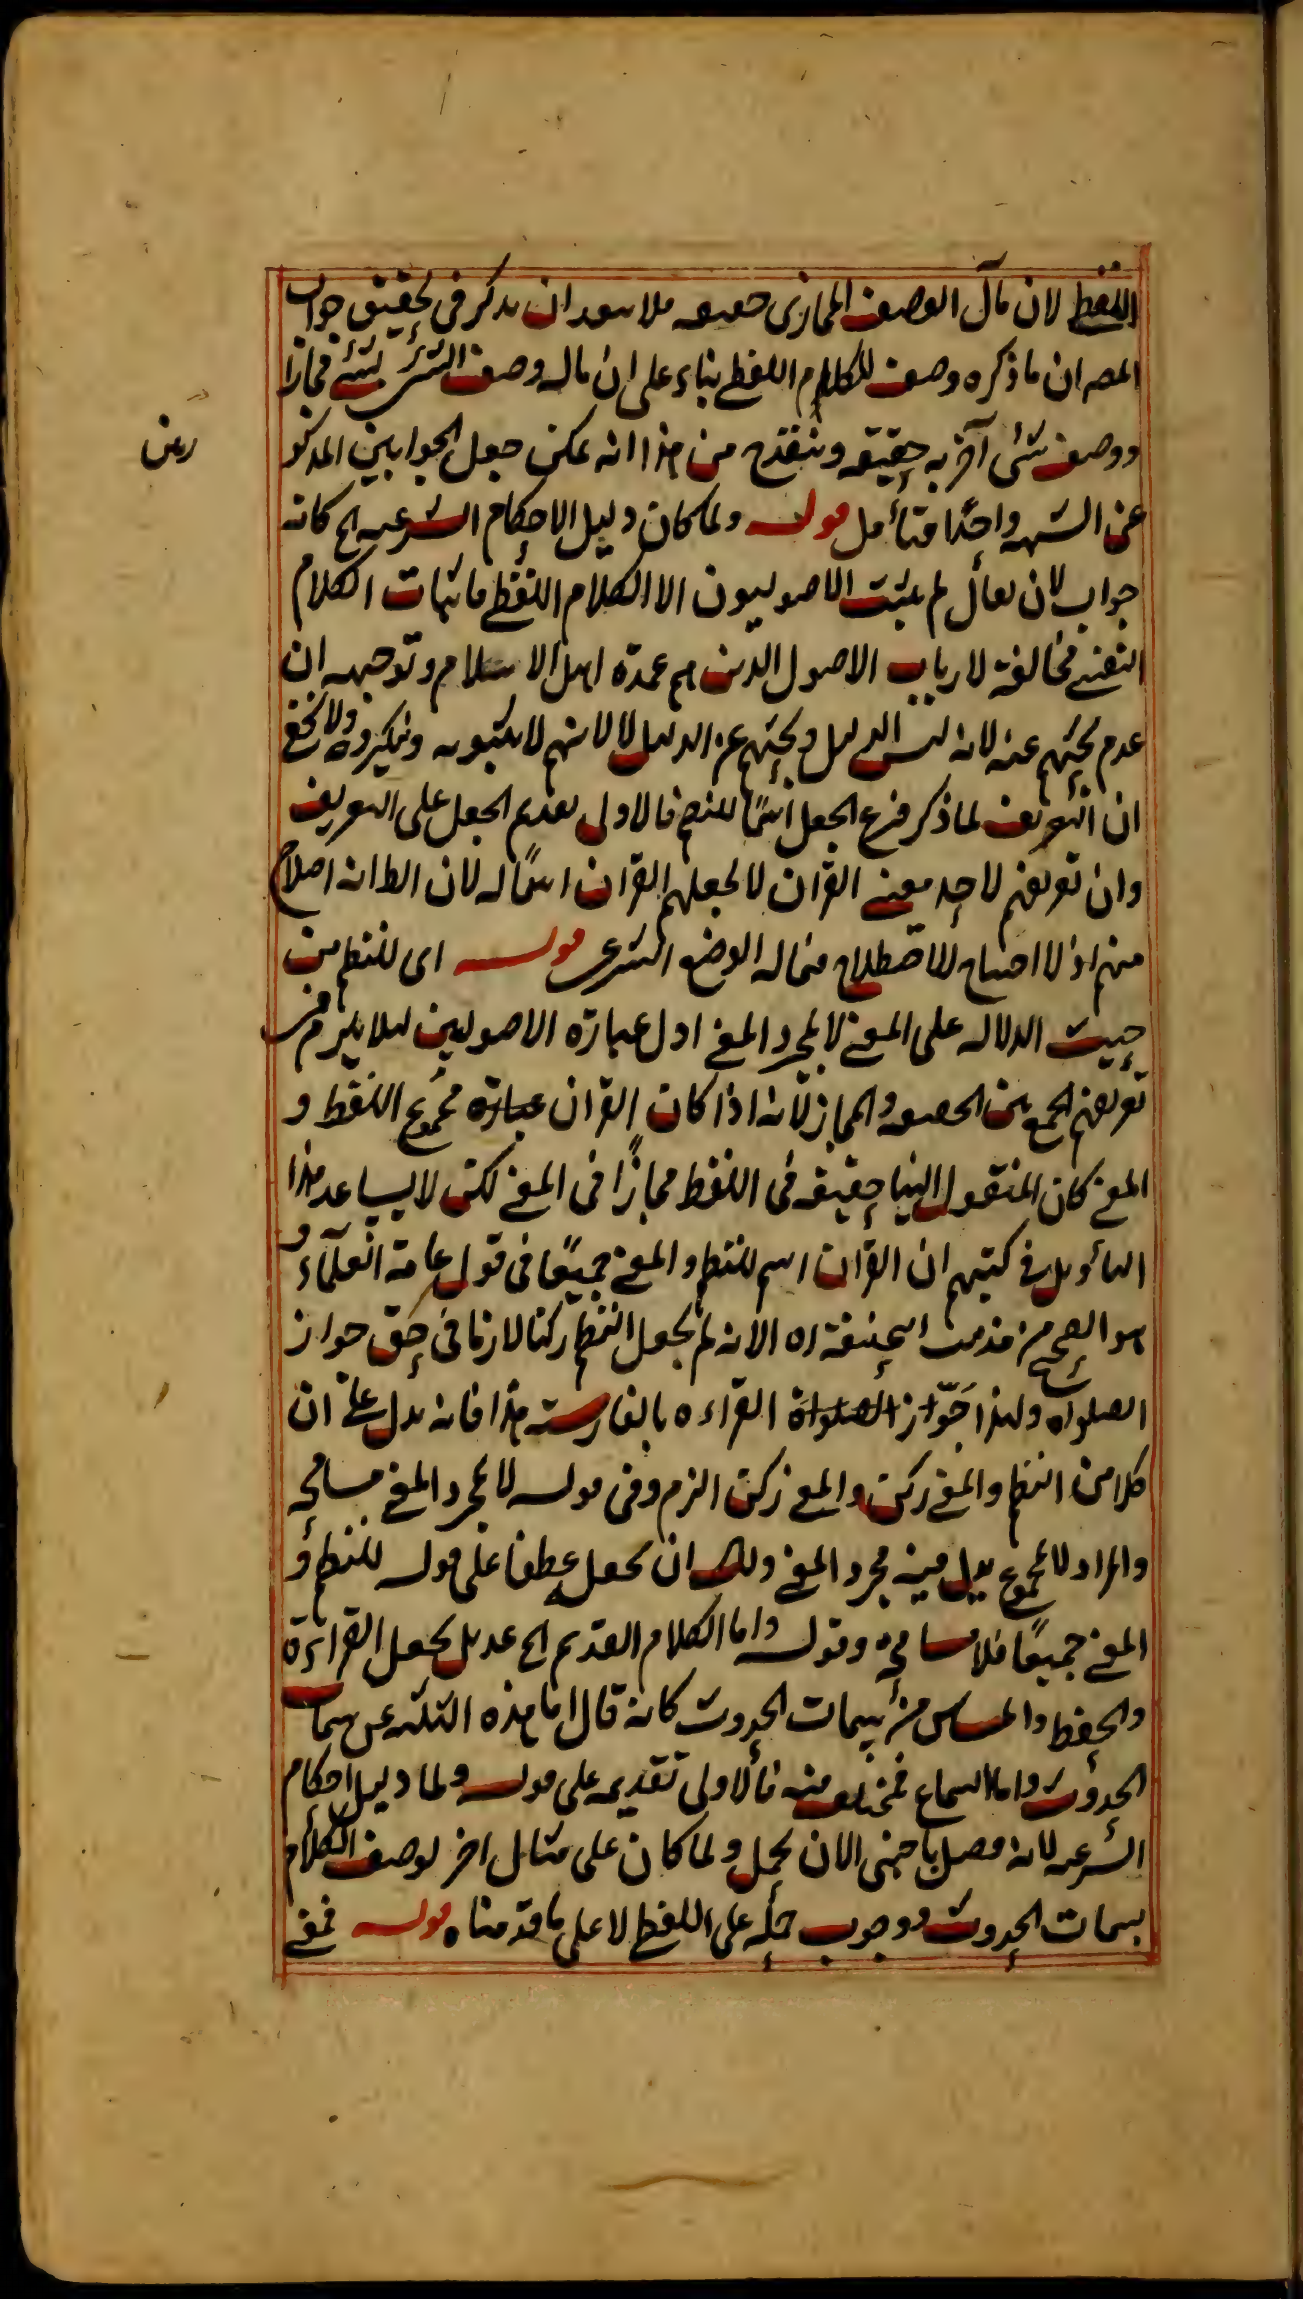 اللفظ لان مآل الوصف المجازى حقيقه فلا يبعد ان يذكر فى تحقيق جواب
المصه ان ما ذكره وصف للكلام اللفظى بناء على ان ماله وصف الشئ لشئ مجازا
ووصف شئ آخر به حقيقه وينقدح من هذا انه يمكن جعل الجوابين المذكو
رين
عن الشبهه واحدًا فتأمل قوله ولما كان دليل الاحكام الشرعيه الخ كانه
جواب لان يقال لم يثبت الاصوليون الا الكلام اللفظى فاثبات الكلام
النفسى مخالفة لارباب الاصول الذين هم عمدة اهل الاسلام وتوجيهه ان
عدم بحثهم عنه لانه ليس الدليل وبحثهم عن الدليل لا لانهم لا يثبتونه وينكرونه ولا يخفى
ان التعريف لما ذكر فرع الجعل اسمًا للنظم فالاولى تقديم الجعل على التعريف
وان تعريفهم لاحد معنى القرآن لا لجعلهم القرآن اسمًا له لان الظ انه اصلاح
منهم اذ لا احتياج للاصطلاح فيما له الوضع الشرعى قوله اى للنظم من
حيث الدلاله على المعنى لا لمجرد المعنى اول عبارة الاصوليين لئلا يلزم من
تعريفهم الجمع بين الحقيقه والمجاز لانه اذا كان القرآن عبارة مجموع اللفظ و
المعنى كان المنقول الينا حقيقه فى اللفظ مجازًا فى المعنى لكن لا يساعد هذا
التأويل فى كتبهم ان القرآن اسم للنظم والمعنى جميعًا فى قول عامة العلماء و
هو الصحيح من مذهب ابى حنيفة ره الا انه لم يجعل النظم ركنا لازما فى حق جواز
الصلواة ولهذا جوّاز الصلواة القراءه بالفارسية هذا فانه يدل على ان
كلا من النظم والمعنى ركن والمعنى ركن الزم وفى قوله لا لمجرد المعنى مسامحه
والمراد لا لمجموع يدل فيه مجرد المعنى ولك ان تجعل عطفا على قوله للنظم و
المعنى جميعًا فلا مسامحة وقوله واما الكلام القديم الخ عديل لجعل القراءة
والحفظ والمساس من سمات الحدوث كانه قال اما هذه الثلثه عن سمات
الحدوث واما السماع فمختلف فيه فالاولى تقديمه على قوله ولما دليل احكام
الشرعيه لانه فصل باجنبى الان يحمل ولما كان على مثال اخر لوصف الكلام
بسمات الحدوث ووجوب حمله على اللفظ لا على ما قدمناه قوله فمعنى